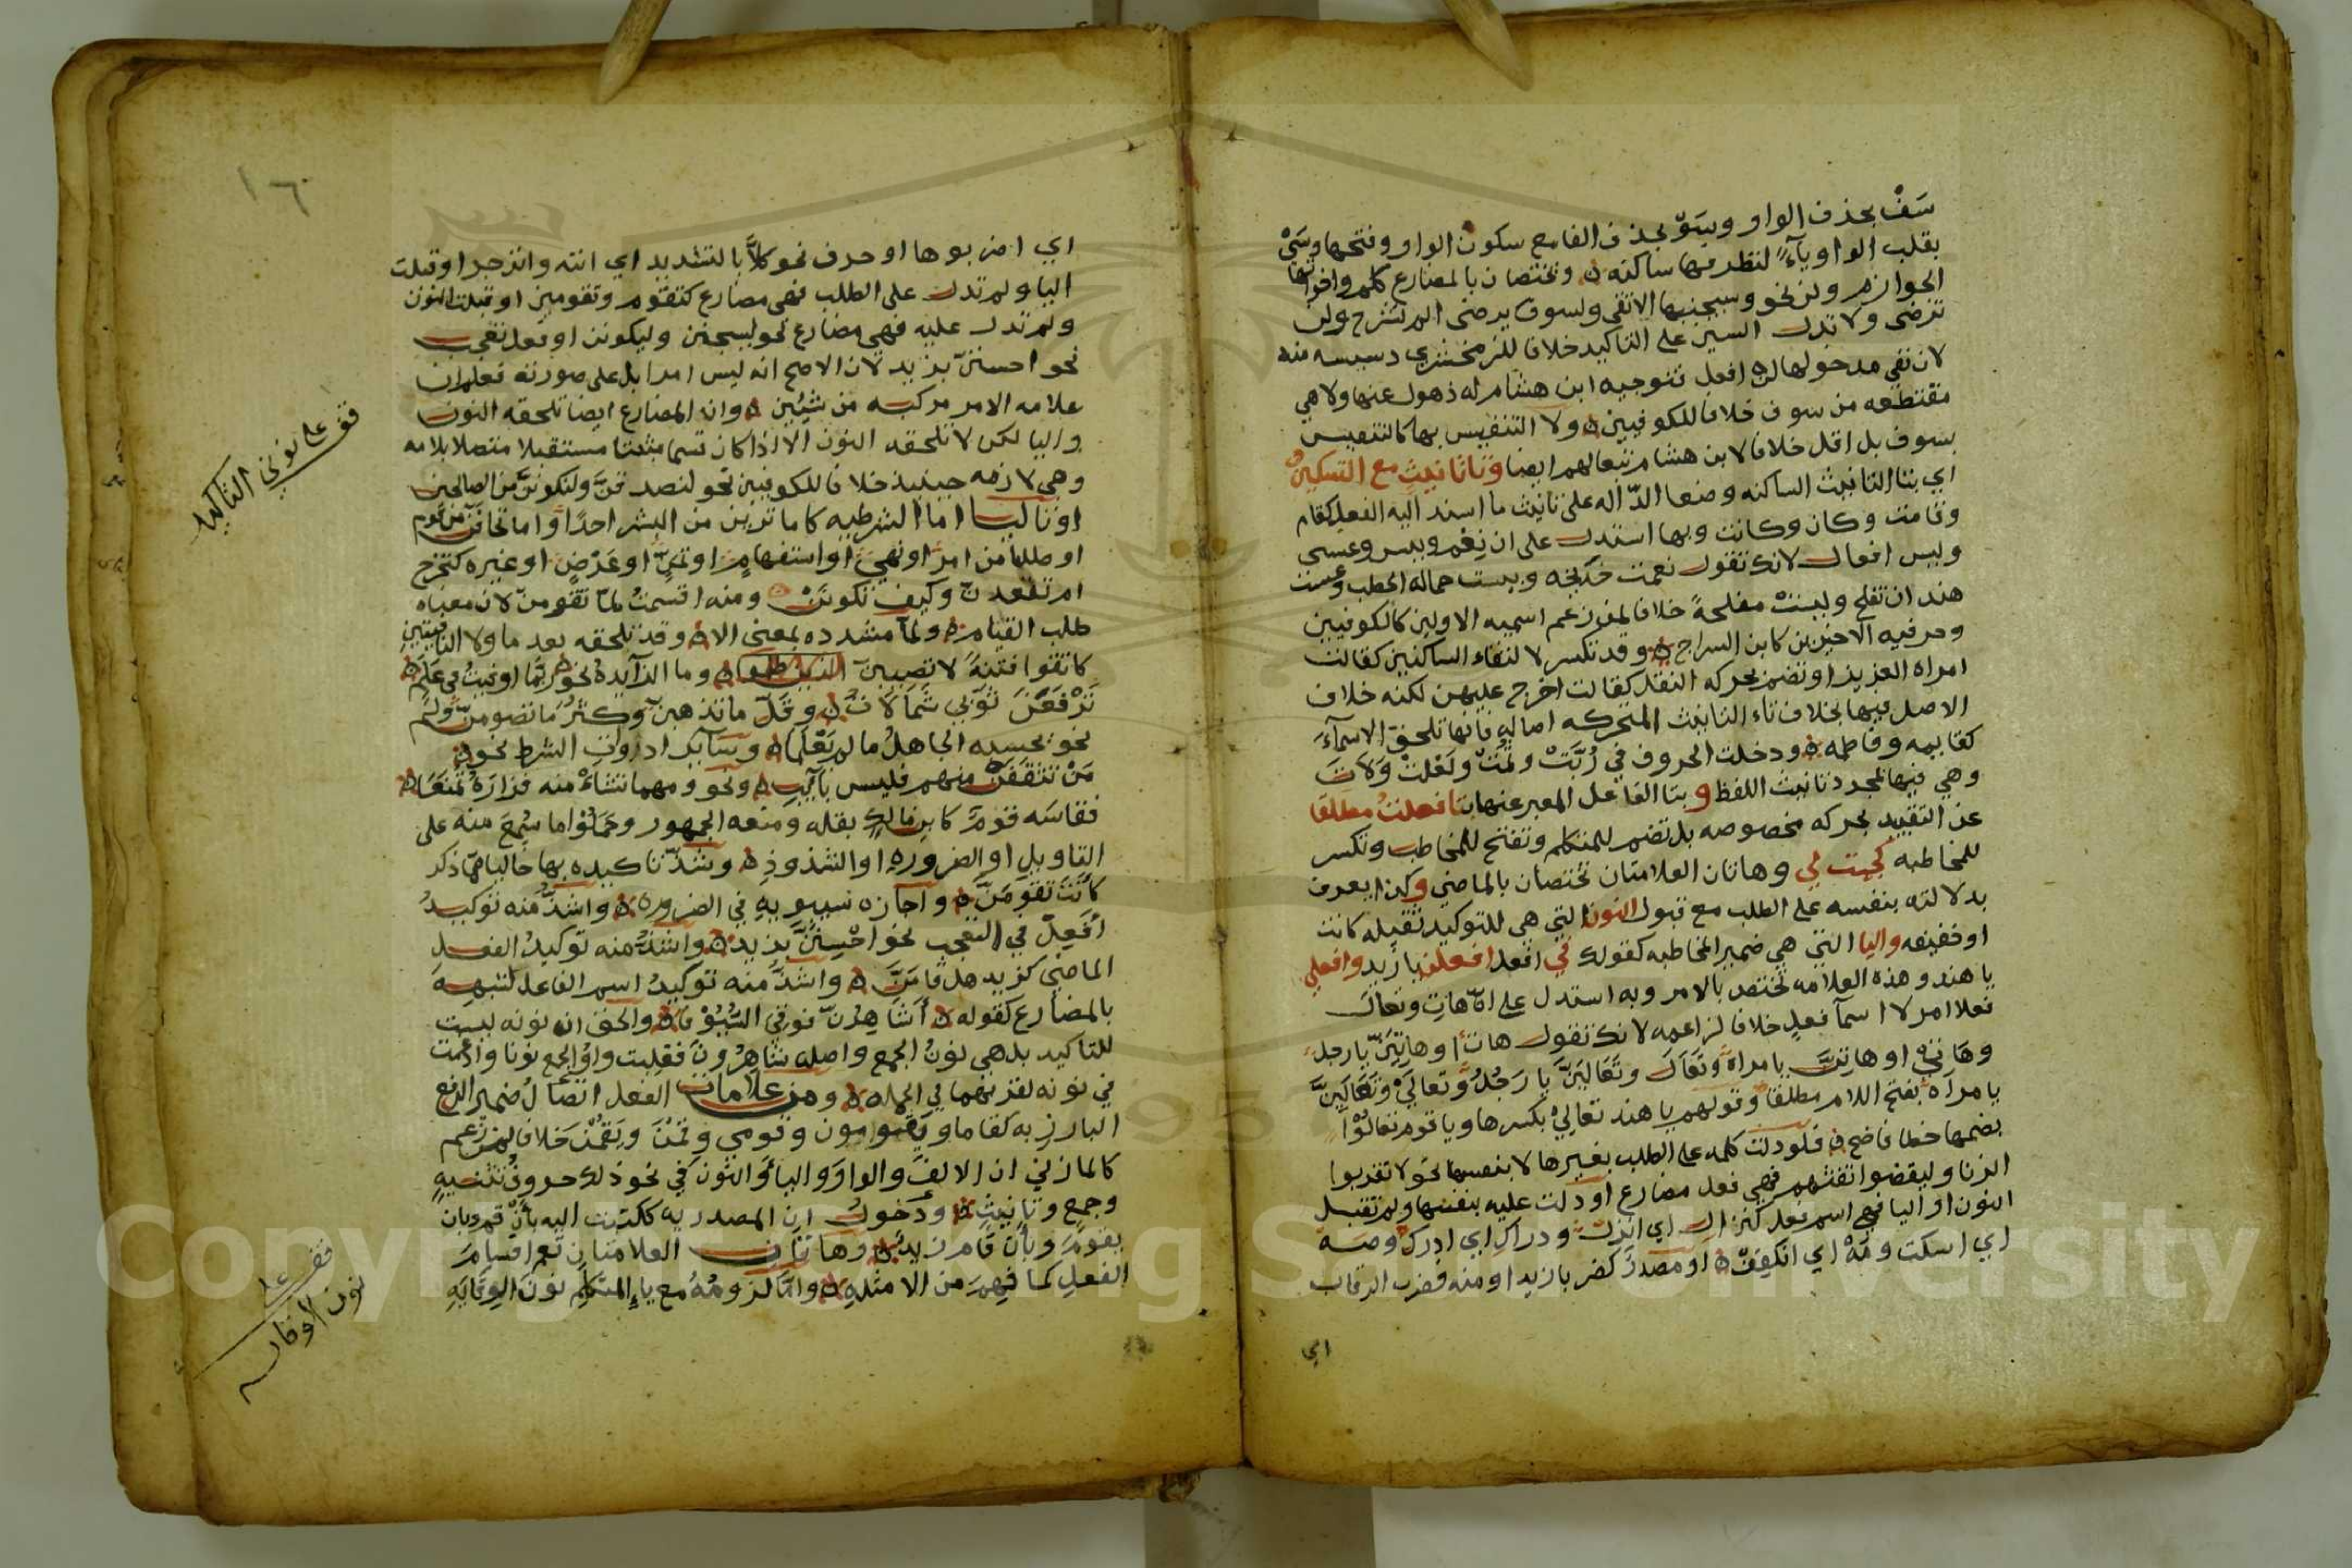 سَفْ بحذف الواو وسَوْ بحذف الفا مع سكون الواو وفتحها وسَيْ
بقلب الواو ياءً لتطرفها ساكنه وتختصان بالمضارع كلم واخواتها
الجوازم ولن نحو وسيجنبها الاتقى ولسوف يرضى الم نشرح ولن
ترضى ولا تدل السين على التاكيد خلافا للزمخشري
لان نفي مدخولها لن افعل فتوجيه ابن هشام له ذهول عنها ولا هي
مقتطعه من سوف خلافا للكوفيين ولا التنفيس بها كالتنفيس
بسوف بل اقل خلافا لابن هشام تبعا لهم ايضا وتا تانيث مع التسكين
اي بتا التانيث الساكنه وضعا الدّاله على تانيث ما اسند اليه الفعل كقام
وقامت وكان وكانت وبها استدل على ان نِعْم وبيس وعسى
وليس افعال لانك تقول نعمت خديجه وبيست حماله الحطب وعست
هند ان تفلح وليست مفلحةً خلافا لمن زعم اسميه الاولين كالكوفيين
وحرفيه الاخيرين كابن السراج وقد تكسر لالتقاء الساكنين كقالت
امراه العزيز او تضم بحركه النقل كقالت اخرج عليهن لكنه خلاف
الاصل فيها بخلاف تاء التانيث المتحركه اصاله فانها تلحق الاسمآءَ
كقايمه وفاطمه ودخلت الحروف في رُبَّتْ وثُمَّتْ ولَعْلتْ وَلاتَ
وهي فيها لمجرد تانيث اللفظ و بتا الفاعل المعبر عنها بتا فعلتُ مطلقا
عن التقييد بحركه مخصوصه بل تضم للمتكلم وتفتح للمخاطب وتكسر
للمخاطبه كجيت لي وهاتان العلامتان تختصان بالماضي وكذا يعرف
بدلالته بنفسه على الطلب مع قبول النون التي هي للتوكيد ثقيله كانت
او خفيفه واليا التي هي ضمير المخاطبه كقولك في افعل افعلن يا زيد وافعلي
يا هند وهذه العلامه تختص بالامر وبه استدل على انّ هاتِ وتعالَ
فعلا امر لا اسمآ فعلٍ خلافا لزاعمه لانك تقول هاتِ او هاتِيَنّ يا رجلُ
وهَاتي او هاتِنَّ يا مراة وتَعَالَ وتَعَالَيَنَّ يا رَجُلُ وتعالَيْ وتَعَالَيِنَّ
يا مرآه بفتح اللام مطلقا وقولهم يا هند تعالِيْ بكسرها ويا قوم تعالُوْا
بضمها خطا فاضح فلو دلت كلمه على الطلب بغيرها لا بنفسها نحو لا تقربوا
الزنا وليقضوا تفثهم فهي فعل مضارع او دلت عليه بنفسها ولم تقبل
النون او اليا فهي اسم فعل كنزال اي انزل ودراكِ اي ادرك وصَه
اي اسكت ومَهْ اي انكفِفْ او مصدرٌ كضربا زيدا ومنه فضرب الرقاب
اي
١٦
اي اضربوها او حرف نحو كلاَّ بالتشديد اي انته وانزجر او قبلت
اليا ولم تدل على الطلب فهي مضارع كتقوم وتقومين او قبلت النون
ولم تدل عليه فهي مضارع نحو ليسجنن وليكونن او فعل تعجب
نحو احسننّ بزيد لان الاصح انه ليس امرا بل على صورته فعلم ان
علامه الامر مركبه من شيئين وان المضارع ايضا تلحقه النون
واليا لكن لا تلحقه النون الا اذا كان قسما مثبتا مستقبلا متصلا بلامه
وهي لازمه حينيذ خلافا للكوفيين نحو لنصدقنَّ ولنكوننَّ من الصالحين
او تاليا اما الشرطيه كاما ترين من البشر احدًا واما تخافنّ من قوم
او طلبا من امرٍ او نهيٍ او استفهامٍ او تمنٍّ او عَرْضٍ او غيره كتخرج
ام تقعدنّ وكيف تكوننْ ومنه اقسمتُ لمّا تقومنّ لان معناه
طلب القيام ولمّآ مشدده بمعنى الا وقد تلحقه بعد ما ولا النافيتين
كاتقوا فتنةً لا تصيبنّ الذين ظلموا وما الزآيدهُ نحو ربَّما اوفيتُ في عَلَمٍ
تَرْفَعَنْ ثوبي شَمَالَاتُ وقَلّ ما تذهبنّ وكثُرَ ما تضومنّ ولَمْ
نحو يحسبه الجاهلُ ما لم يَعْلَمَا وسآير ادَوَاتِ الشرط نحو
مَنْ تثقفَنْ منهم فليس بآيبٍ ونحو ومهما تشاءْ منه فزارَةُ تمنَعَا
فقاسَه قومٌ كابن مالكٍ بقله ومنعه الجمهور وحَمَلُوْا ما سُمِعَ منه على
التاويلِ او الضروره او الشذوذِ وشذّ تاكيده بها خاليا ممّا ذكر
كانّتَ تقومَنَّ واجازه سيبويهِ في الضروره واشذُّ منه توكيدُ
أفْعِلْ في التعجب نحو احْسِنَنَّ بزيد واشذُّ منه توكيدُ الفعل
الماضي كزيد هل قامَنَّ واشذُّ منه توكيدُ اسم الفاعل لشبهه
بالمضارع كقوله أشاهِرُنّ فوقي السُّيُوْفا والحق ان نونه ليست
للتاكيد بل هي نونُ الجمع واصله شاهِرُونَ فقلبت واوُ الجمع نونا وادغمت
في نونه لقربهما في الجمله ومن علامات الفعل اتصالُ ضمير الرفع
البارزِ به كقاما ويقومون وقومي وقمْنَ ويَقمْنَ خلافا لمن زعم
كالمازني ان الالفَ والواوَ واليآءَ والنّون في نحو ذلك حروفُ تثنيهٍ
وجمعٍ وتانيثٍ ودخولُ ان المصدريه ككتبت اليه بأن قم وبان
يقومَ وبأن قامَ زيدٌ وهاتان العلامتان تعم اقسامَ
الفعلِ كما فُهِمَ من الامثلهِ وامّا لزومُهُ مع ياءِ المتكلم نون الوقايَهِ
قف على نوني التاكيد
قف على
نون الوقايه